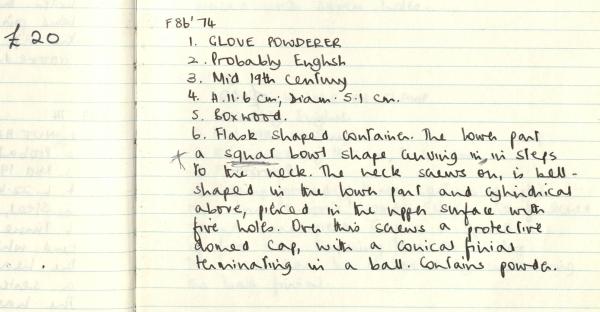 £20
F86'74
1. GLOVE POWDERER
2. Probably English
3. Mid 19th century
4. H. 11.6 cm; Diam. 5.1 cm.
5. Boxwood.
6. Flask shaped container. The lower part
a squat bowl shape curving in, in steps
to the neck. The neck screws on, is bell-
shaped in the lower part and cylindrical
above, pierced in the upper surface with
five holes. Over this screws a protective
domed cap, with a conical finial
terminating in a ball. Contains powder.